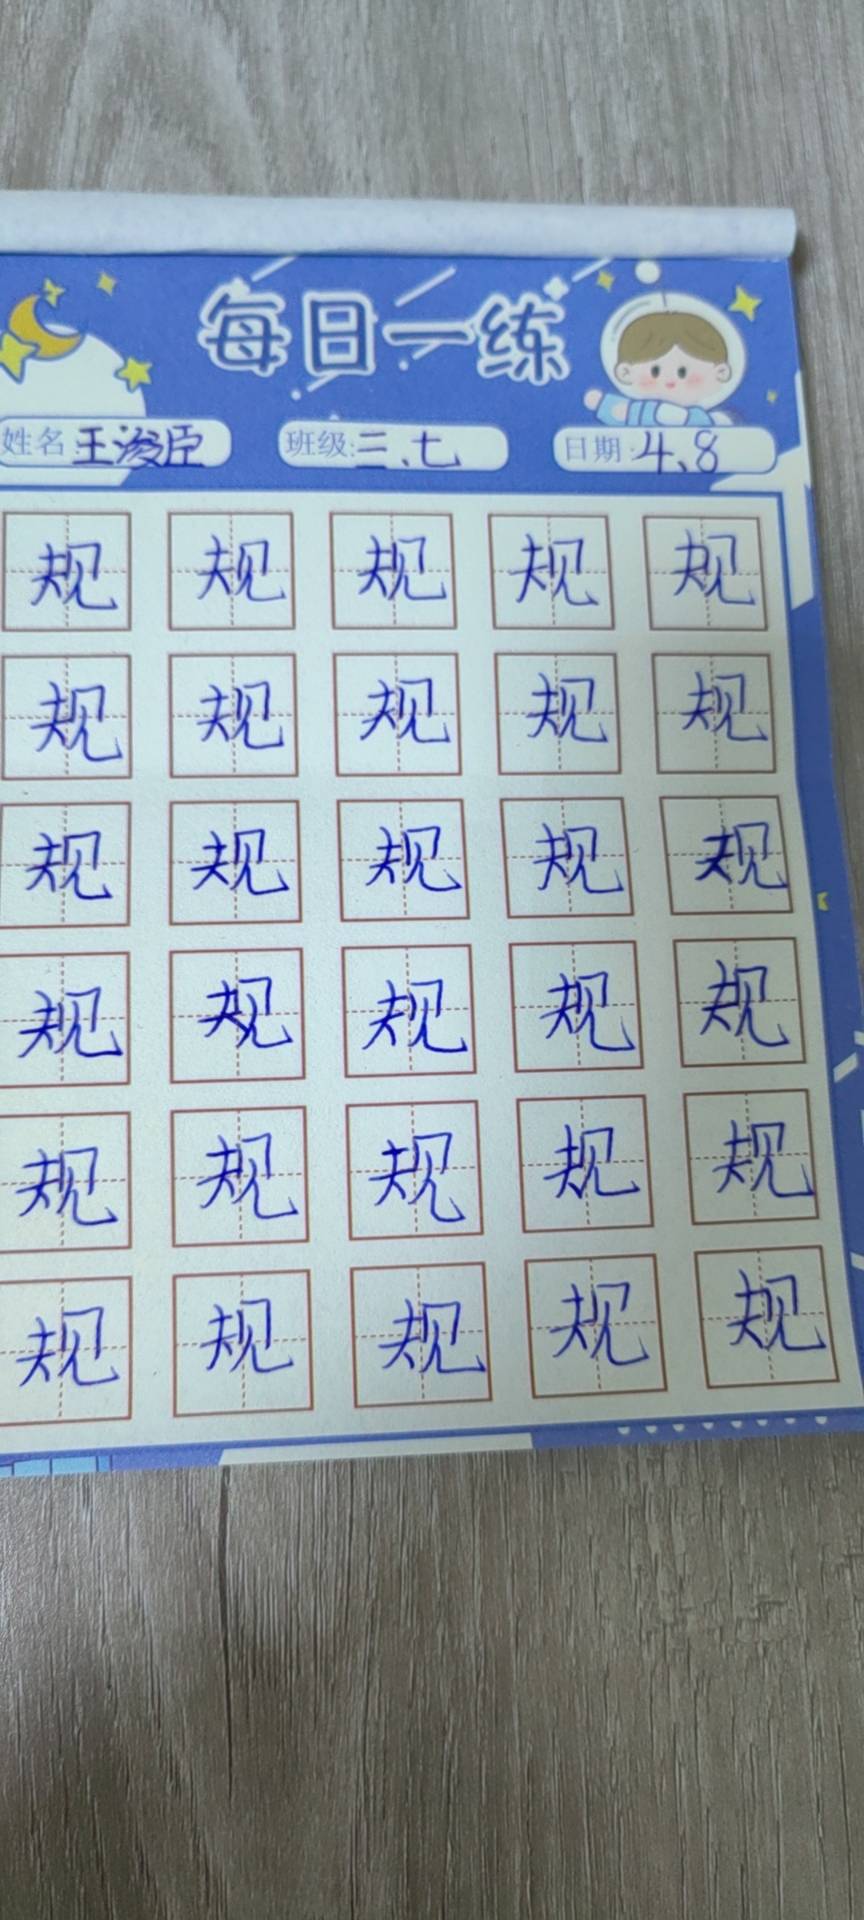 每日一练
姓名:王浚臣 班级:三、七 日期:4、8
规 规 规 规 规
规 规 规 规 规
规 规 规 规 规
规 规 规 规 规
规 规 规 规 规
规 规 规 规 规